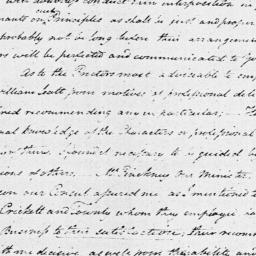 with
conduct an interposition in
such
ments on Principles as shall be just and proper
probably not be long before their arrangeme
rs will be perfected and communicated to yo
As to the Proctors most adviseable to em
William Scott, from motives of professional deli
ned recommending any in particular;
nal knowledge of the Characters or professional
on theirs, I found it necessary to be guided b
ions of others. Mr. Pinckney our Minister
en our Consul assured me, as I mentioned t
Crickett and Townly whom they employed in
Business to their satisfaction; their recom
th me decisive, as well from their ability and